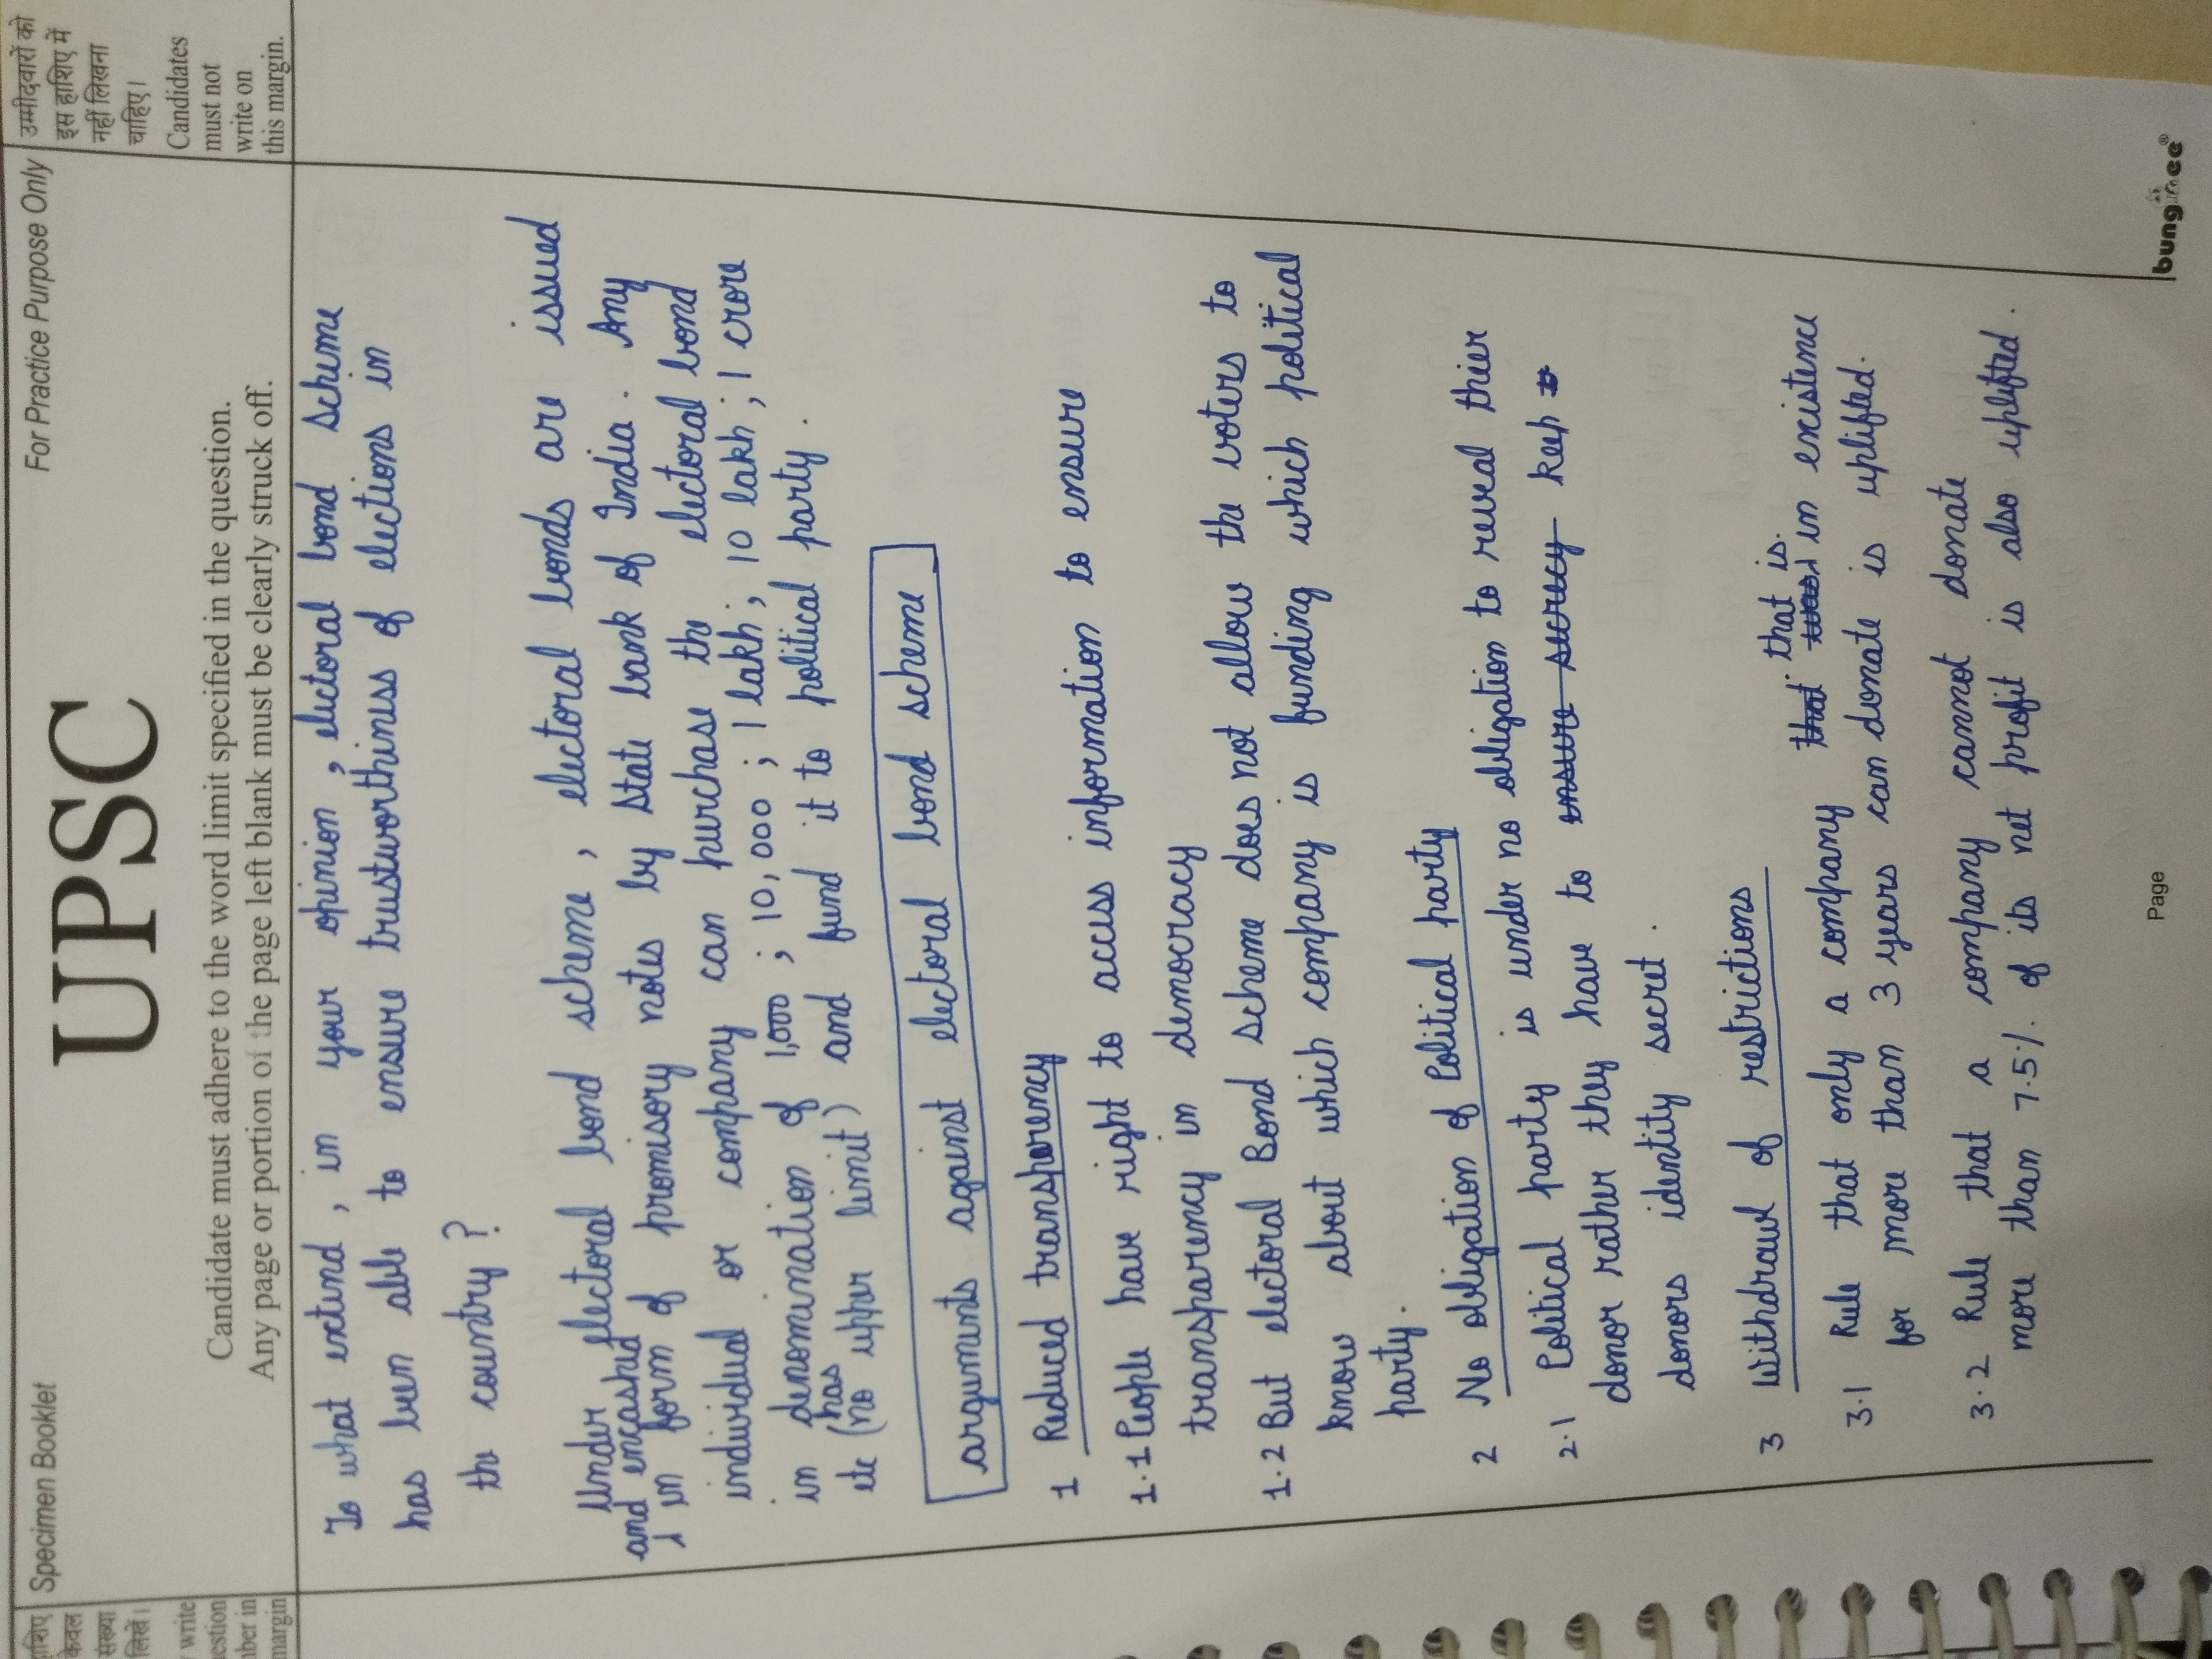 हाशिए
केवल
संख्या
लिखें।
write
uestion
mber in
margin
Specimen Booklet
For Practice Purpose Only
UPSC
Candidate must adhere to the word limit specified in the question.
Any page or portion of the page left blank must be clearly struck off.
उम्मीदवारों को
इस हाशिए में
नहीं लिखना
चाहिए।
Candidates
must not
write on
this margin.
To what extend, in your opinion, electoral bond scheme
has been able to ensure trustworthiness of elections in
the country?
Under electoral bond scheme, electoral bonds are issued
and encashed
in form of promisory notes by State bank of India. Any
individual or company can purchase the electoral bond
in denomination of 1,000; 10,000; 1 lakh; 10 lakh; 1 crore
etc (has no upper limit) and fund it to political party.
arguments against electoral bond scheme
1 Reduced transparency
1.1 People have right to access information to ensure
transparency in democracy
1.2 But electoral Bond scheme does not allow the voters to
know about which company is funding which political
party.
2 No obligation of Political party
2.1 Political party is under no obligation to reveal thier
donor rather they have to ensure secrecy keep
donors identity secret.
3 Withdrawl of restrictions
3.1 Rule that only a company that that is in existence
for more than 3 years can donate is uplifted.
3.2 Rule that a company cannot donate
more than 7.5% of its net profit is also uplifted.
Page
bungee®